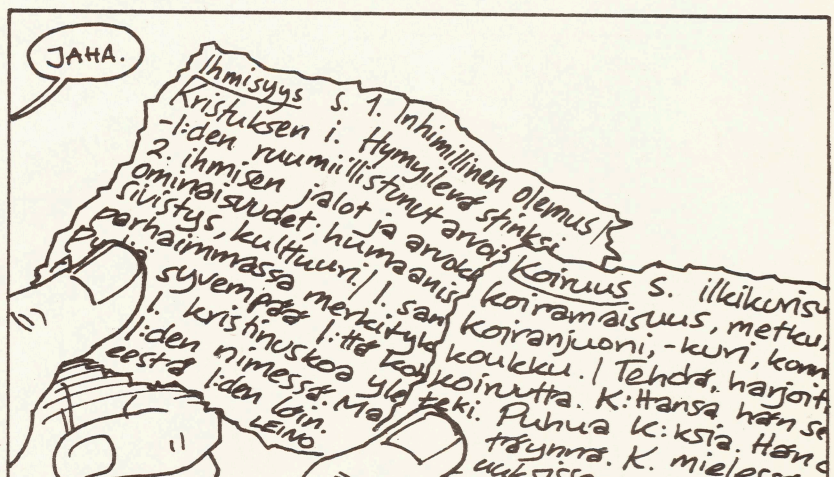 JAHA.
Ihmisyys s. 1. Inhimillinen olemus/
Kristuksen i. Hymyilevä sfinksi
-I:den ruumiillistunut arvoi
2. ihmisen jalot ja arvok
ominaisuudet; humaanis
sivistys, kulttuuri./ I. san
parhaimmassa merkityk
syvempää I:ttä ko
I. kristinuskoa yle
I:den nimessä. Ma
eestä I:den lain.
LEINO
Koiruus s. ilkikurisu
koiramaisuus, metku,
koiranjuoni, -kuri, konn
koukku. / Tehdä, harjoitt
koiruutta. K:ttansa hän se
teki. Puhua K:ksia. Hän o
täynnä. K. mieless
uuksissa